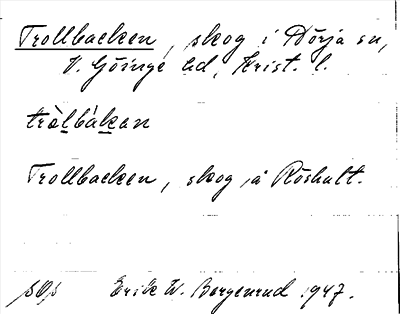 Trollbacken, skog i Dörja sn,
V. Göinge hd, Krist. l.
tròlbákan
Trollbacken, skog å Röshult.
Erik W. Borgenrud 1947.